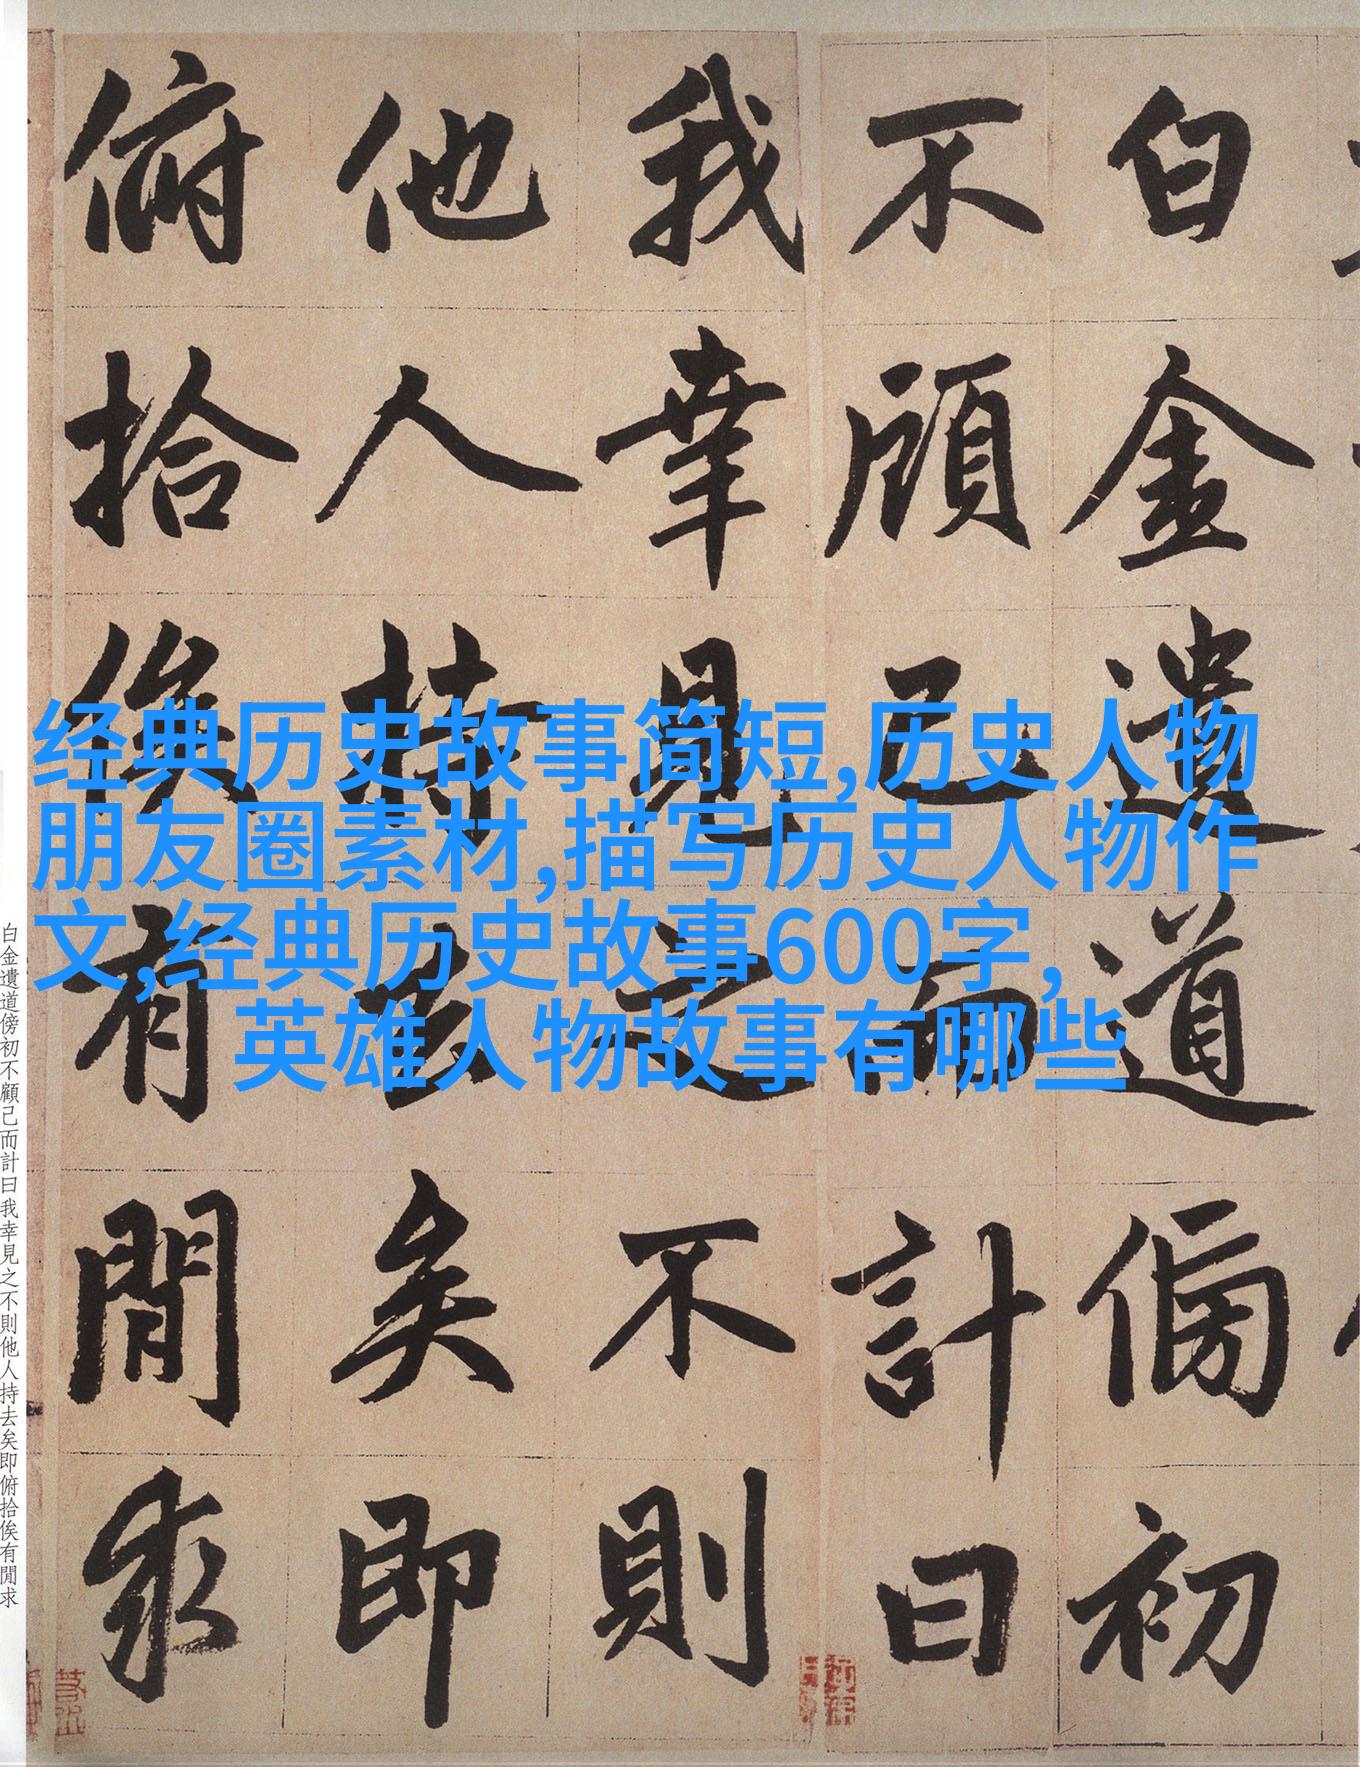 白金遺道傍初
不顧己而計曰
我幸見之不則
他人持去矣即
俯拾俟有閒求
经典历史故事简短,历史人物
朋友圈素材,描写历史人物作
文,经典历史故事600字,
英雄人物故事有哪些
白金遺道傍初不顧己而計曰我幸見之不則他人持去矣即俯拾俟有閒求